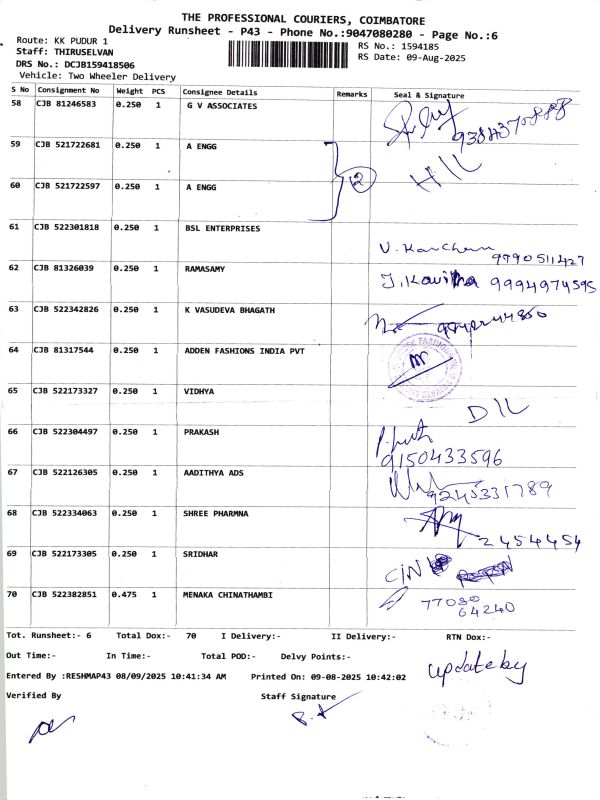 THE PROFESSIONAL COURIERS, COIMBATORE
Delivery Runsheet - P43 - Phone No.:9047080280 - Page No.:6
Route: KK PUDUR 1
RS No.: 1594185
Staff: THIRUSELVAN
RS Date: 09-Aug-2025
DRS No.: DCJB159418506
Vehicle: Two Wheeler Delivery
S No Consignment No Weight PCS Consignee Details Remarks Seal & Signature
58 CJB 81246583 0.250 1 G V ASSOCIATES
59 CJB 521722681 0.250 1 A ENGG
2
60 CJB 521722597 0.250 1 A ENGG
61 CJB 522301818 0.250 1 BSL ENTERPRISES
9790511427
62 CJB 81326039 0.250 1 RAMASAMY J. Kavitha 9994974595
63 CJB 522342826 0.250 1 K VASUDEVA BHAGATH
64 CJB 81317544 0.250 1 ADDEN FASHIONS INDIA PVT
65 CJB 522173327 0.250 1 VIDHYA
D/L
66 CJB 522304497 0.250 1 PRAKASH
9150433596
67 CJB 522126305 0.250 1 AADITHYA ADS
9245331789
68 CJB 522334063 0.250 1 SHREE PHARMNA
2454454
69 CJB 522173305 0.250 1 SRIDHAR
70 CJB 522382851 0.475 1 MENAKA CHINATHAMBI
77080
64240
Tot. Runsheet:- 6 Total Dox:- 70 I Delivery:- II Delivery:- RTN Dox:-
Out Time:- In Time:- Total POD:- Delvy Points:-
update by
Entered By :RESHMAP43 08/09/2025 10:41:34 AM Printed On: 09-08-2025 10:42:02
Verified By Staff Signature